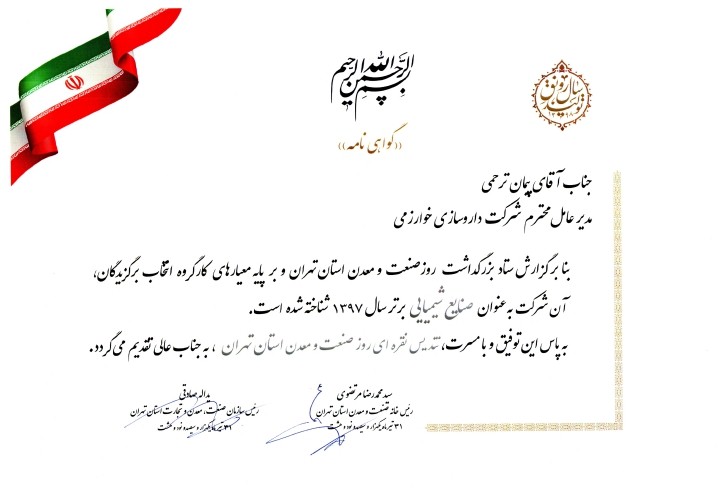 بسم الله الرحمن الرحیم
سال رونق تولید
۱۳۹۸
((گواهی نامه))
جناب آقای پیمان ترحمی
مدیر عامل محترم شرکت داروسازی خوارزمی
بنا بر گزارش ستاد بزرگداشت روز صنعت و معدن استان تهران و بر پایه معیارهای کارگروه انتخاب برگزیدگان،
آن شرکت به عنوان صنایع شیمیایی برتر سال ۱۳۹۷ شناخته شده است.
به پاس این توفیق و با مسرت، تندیس نقره ای روز صنعت و معدن استان تهران ، به جناب عالی تقدیم می گردد.
سید محمدرضا مرتضوی
رئیس خانه صنعت و معدن استان تهران
۳۱ تیرماه یکهزار و سیصد و نود و هشت
یداله صادقی
رئیس سازمان صنعت، معدن و تجارت استان تهران
۳۱ تیرماه یکهزار و سیصد و نود و هشت